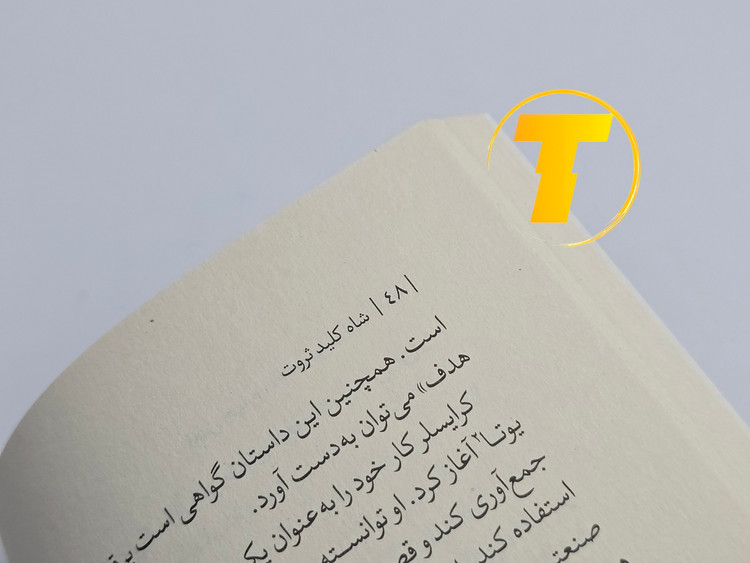 T
|٤٨| شاه کلید ثروت
است. همچنین این داستان گواهی است
هدف» می‌توان به دست آورد.
کرایسلر کار خود را به عنوان
یوتا" آغاز کرد. او توانسته
جمع‌آوری کند و
استفاده کند